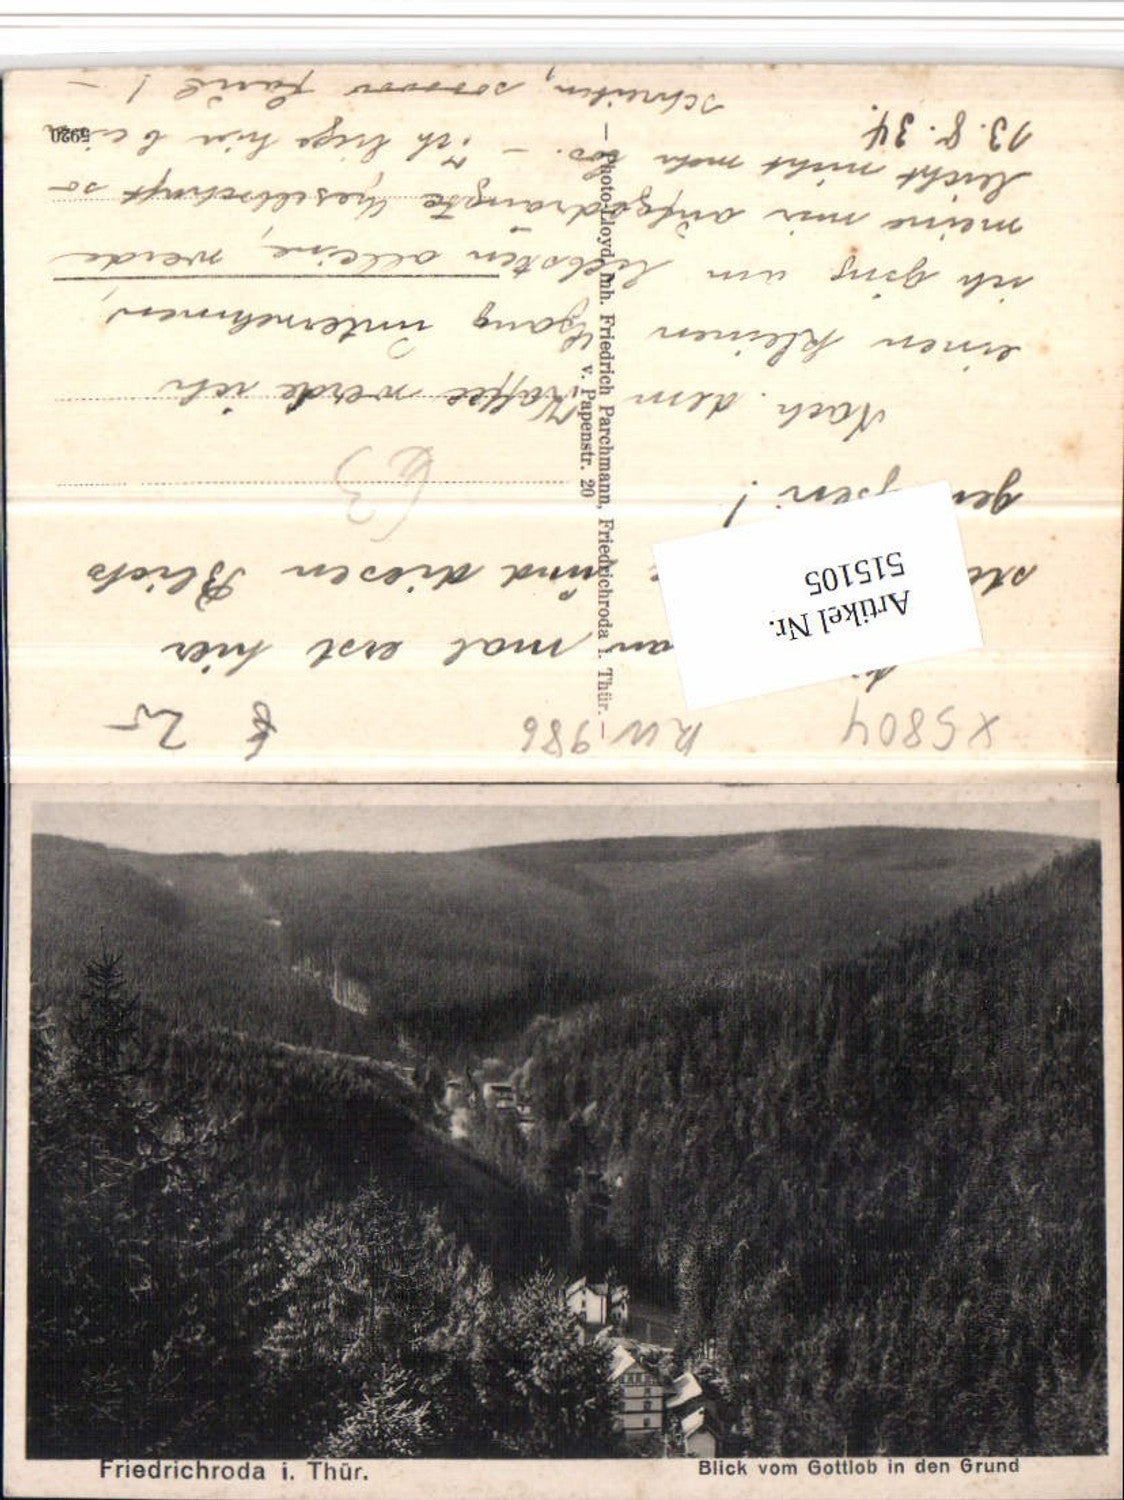 x5804 RW 986 € 25 –
mal erst hier
und diesen Blick
!
Nach dem Kaffee werde ich
einen kleinen unternehmen,
ich ging am liebsten alleine, werde
meine mir aufgedrängte Gesellschaft so
leicht nicht mehr los. – Ich liege hier beim
13.8.34. Schreiben, faul! –
5920
– Photo-Lloyd, Inh. Friedrich Parchmann, Friedrichroda i. Thür. –
v. Papenstr. 20
Artikel Nr.
515105
Friedrichroda i. Thür.
Blick vom Gottlob in den Grund